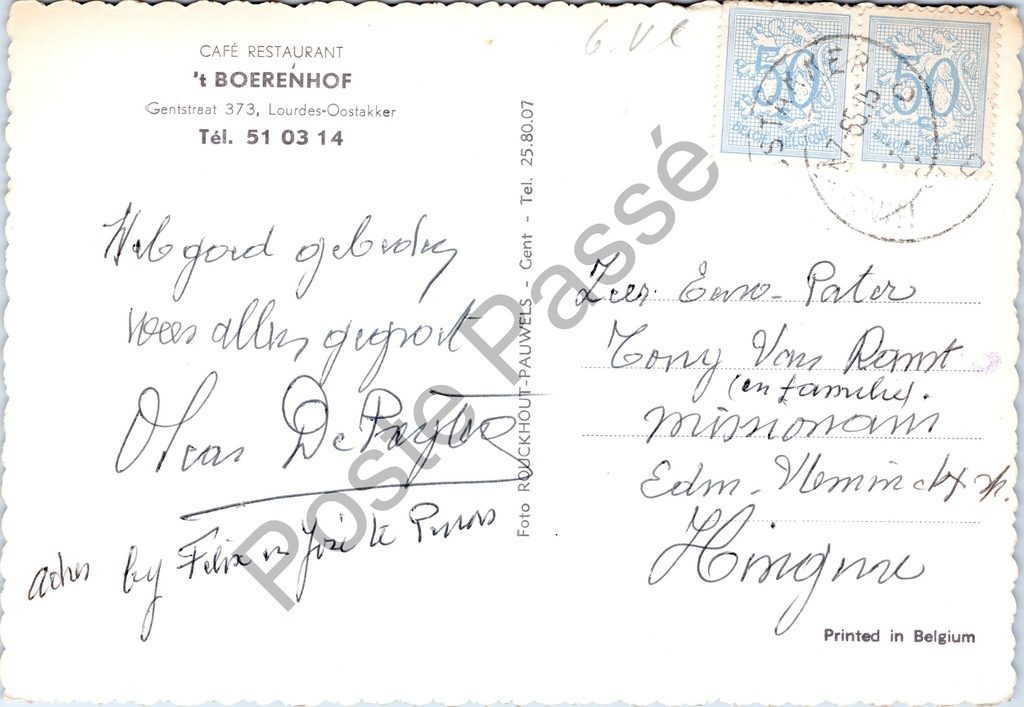 CAFÉ RESTAURANT
't BOERENHOF
Gentstraat 373, Lourdes-Oostakker
Tél. 51 03 14
goed
voor allen gegroet
De
adres by Felix en José te
Foto ROUCKHOUT-PAUWELS - Gent - Tel. 25.80.07
6. Vl
50 50
BELGIE-BELGIQUE BELGIE-BELGIQUE
Zeer Eerw. Pater
Tony Van Ramst
(en familie).
missionaris
Edm. Vleminckx str.
Hingene
Printed in Belgium
Poste Passé